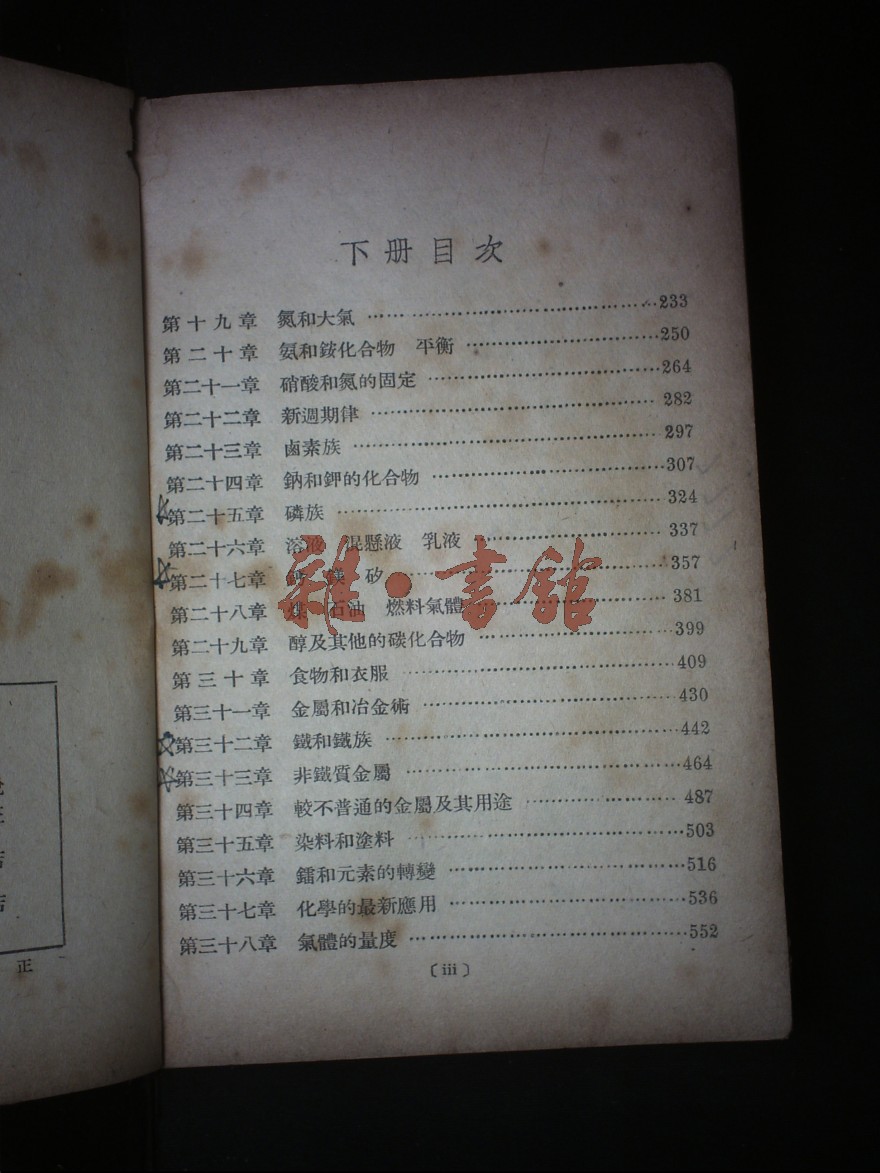 下册目次
第十九章 氮和大氣 233
第二十章 氨和銨化合物 平衡 250
第二十一章 硝酸和氮的固定 264
第二十二章 新週期律 282
第二十三章 鹵素族 297
第二十四章 鈉和鉀的化合物 307
第二十五章 磷族 324
第二十六章 溶液 混懸液 乳液 337
第二十七章 鎂 矽 357
第二十八章 煤 石油 燃料氣體 381
第二十九章 醇及其他的碳化合物 399
第三十章 食物和衣服 409
第三十一章 金屬和冶金術 430
第三十二章 鐵和鐵族 442
第三十三章 非鐵質金屬 464
第三十四章 較不普通的金屬及其用途 487
第三十五章 染料和塗料 503
第三十六章 鐳和元素的轉變 516
第三十七章 化學的最新應用 536
第三十八章 氣體的量度 552
〔iii〕
雜·書館
正